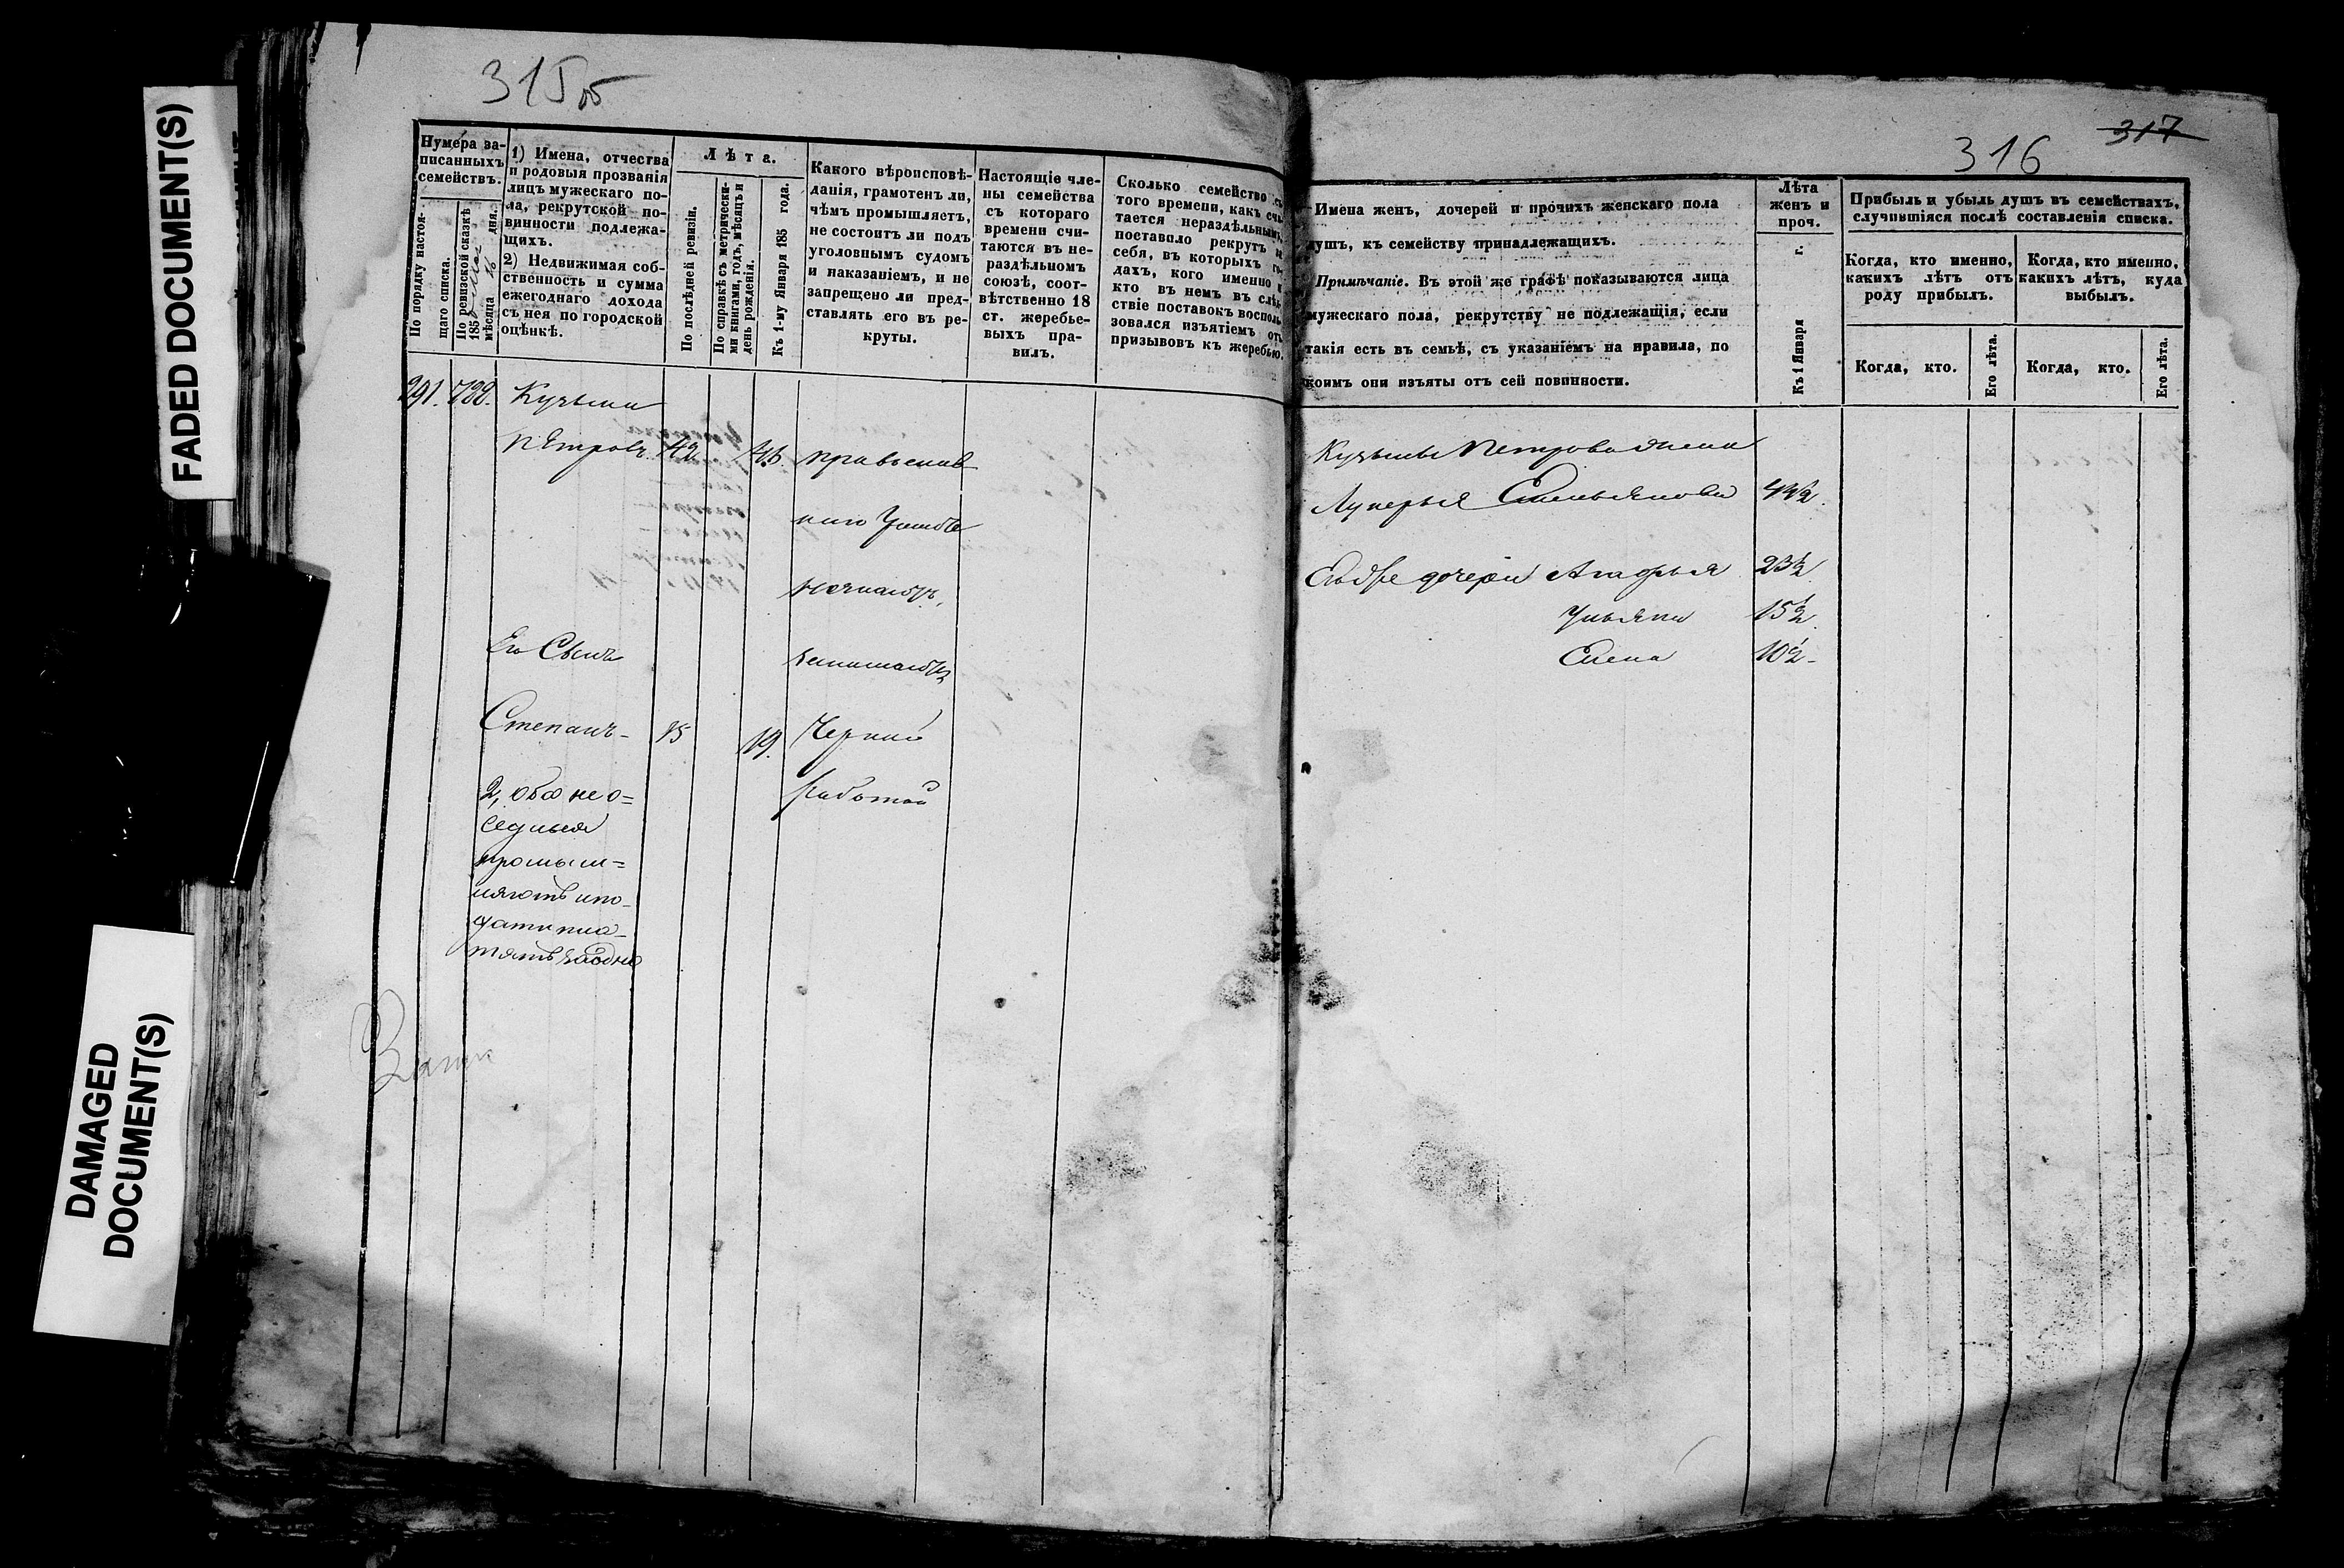 FADED DOCUMENT(S)
DAMAGED
DOCUMENT(S)
315об
Нумера за-
писанныхъ
семействъ.
По порядку настоя-
щаго списка.
По ревизской сказкѣ
185
мѣсяца 16 дня.
1) Имена, отчества
и родовыя прозванія
лицъ мужескаго по-
ла, рекрутской по-
винности подлежа-
щихъ.
2) Недвижимая соб-
ственность и сумма
ежегоднаго дохода
съ нея по городской
оцѣнкѣ.
Лѣта.
По послѣдней ревизіи.
По справкѣ съ метрически-
ми книгами, годъ, мѣсяцъ и
день рожденія.
Къ 1-му Января 185 года.
Какого вѣроисповѣ-
данія, грамотенъ ли,
чѣмъ промышляетъ,
не состоитъ ли подъ
уголовнымъ судомъ
и наказаніемъ, и не
запрещено ли пред-
ставлять его въ ре-
круты.
Настоящіе чле-
ны семейства
съ котораго
времени счи-
таются въ не-
раздѣльномъ
союзѣ, соот-
вѣтственно 18
ст. жеребье-
выхъ пра-
вилъ.
Сколько семейство съ
того времени, какъ счи-
тается нераздѣльнымъ,
поставило рекрутъ и
себя, въ которыхъ го-
дахъ, кого именно и
кто въ немъ въ слѣд-
ствіе поставокъ восполь-
зовался изъятіемъ отъ
призывовъ къ жеребью.
291. 788. Кузьма
Петровъ 42 46. православ
наго
Его Сынъ
Степанъ- 15 19. Черной
работой
2, оба не о=
седлыя
промыш=
ляютъ и по-
дати пла-
тятъ заодно
316
317
Имена женъ, дочерей и прочихъ женскаго пола
душъ, къ семейству принадлежащихъ.
Примѣчаніе. Въ этой же графѣ показываются лица
мужескаго пола, рекрутству не подлежащія, если
такія есть въ семьѣ, съ указаніемъ на правила, по
коимъ они изъяты отъ сей повинности.
Лѣта
женъ и
проч.
Къ 1 Января г.
Прибыль и убыль душъ въ семействахъ,
случившіяся послѣ составленія списка.
Когда, кто именно,
какихъ лѣтъ отъ
роду прибылъ.
Когда, кто именно,
какихъ лѣтъ, куда
выбылъ.
Когда, кто.
Его лѣта.
Когда, кто.
Его лѣта.
Кузьмы Петрова жена
Лукерья Емельянова
Его дочери 23½
Ульяна 15½
Елена 10½-